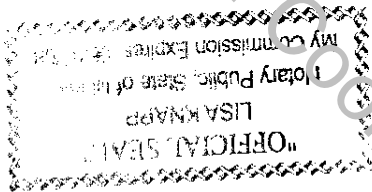 "OFFICIAL SEAL"
LISA KNAPP
Notary Public, State of
My Commission Expires